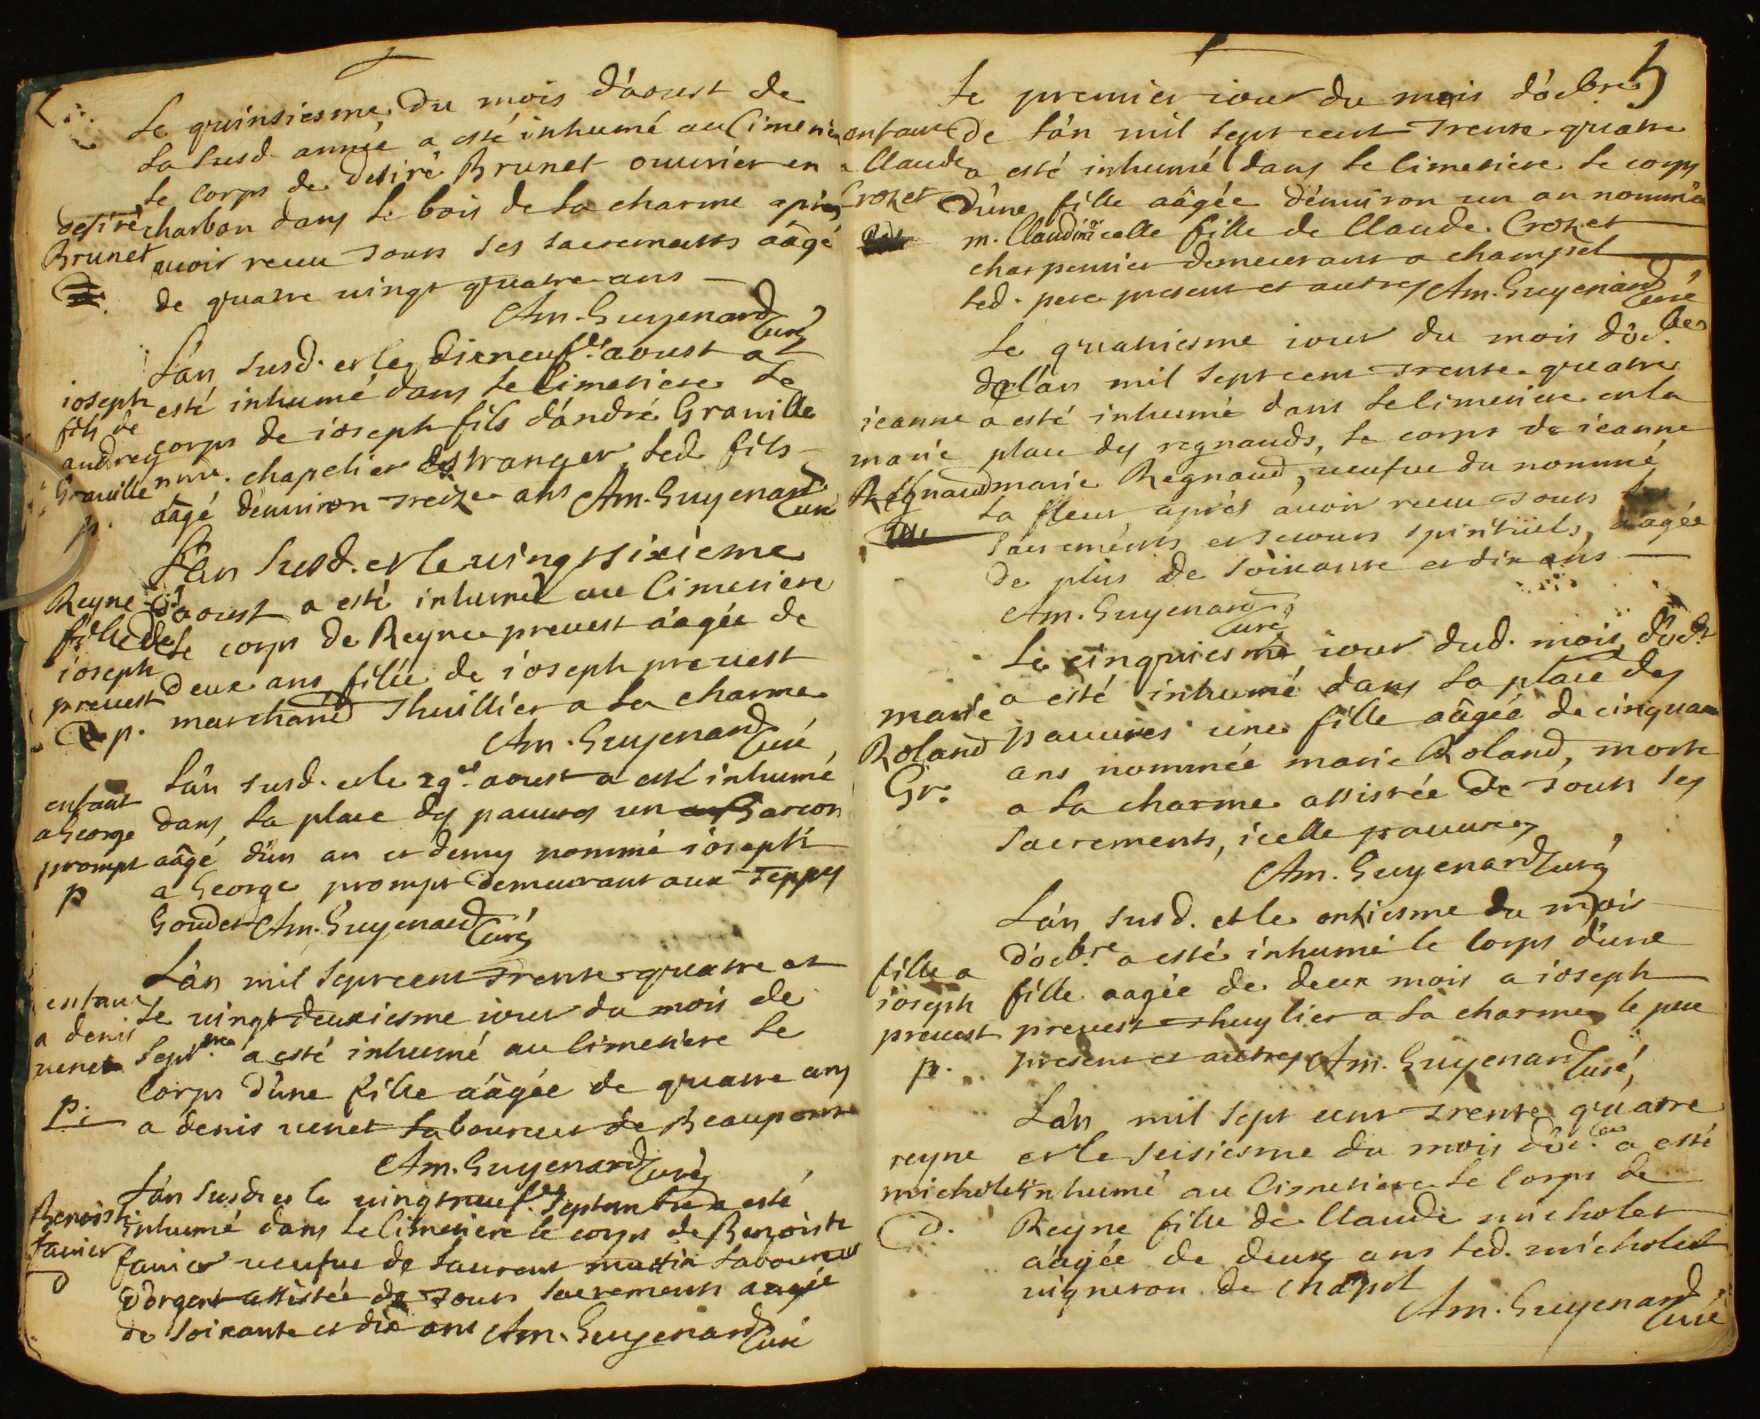 Le quinsiesme du mois d'aoust de
la susd. année a esté inhumé au Cimetie
le corps de desiré Brunet ouvrier en
desiré charbon dans le bois de la charme apres
Brunet avoir receu tous ses sacrements aâgé
de quatre vingt quatre ans
Am. Guyenard Curé
L'an susd. et le dixneuf.e aoust a
ioseph esté inhumé dans le Cimetiere le
fils de corps de ioseph fils d'andré Graville
andrey chapelier estranger led. fils
Graville aâgé d'environ treize ans Am. Guyenard Curé
p.
L'an susd. et le vingt sixieme
Reyne d'aoust a esté inhumé au Cimetiere
fille de le corps de Reyne prevest aâgée de
ioseph deux ans fille de ioseph prevest
prevest marchand thuillier a la charme
p. Am. Guyenard Curé
L'an susd. et le 29.e aoust a esté inhumé
enfant dans la place des pauvres un garcon
a George aâgé d'un an et demy nommé ioseph
prompt a George prompt demeurant aux Teppes
p Goudet Am. Guyenard Curé
L'an mil sept cent trente quatre et
enfant le vingt deuxiesme iour du mois de
a denis sept.bre a esté inhumé au Cimetiere le
venet corps d'une fille aâgée de quatre ans
p. a denis venet laboureur de Beaupont
Am. Guyenard Curé
L'an susd. et le vingtneuf.e septembre a esté
Benoiste inhumé dans le Cimetiere le corps de Benoiste
favier favier veufve de laurent martin laboureur
D d'orgent assistée de tous sacrements aagée
de soixante et dix ans Am. Guyenard Curé
5
Le premier iour du mois d'octbre
enfant de l'an mil sept cent trente quatre
a Claude a esté inhumé dans le Cimetiere le corps
Crozet d'une fille aâgée d'environ un an nommée
m. Claudine icelle fille de Claude Crozet
charpentier demeurant a champsel
led. pere present et autres Am. Guyenard Curé
Le quatriesme iour du mois d'oct.bre
de l'an mil sept cent trente quatre
ieanne a esté inhumé dans le Cimetiere en la
marie place des regnauds, le corps de ieanne
Regnaud marie Regnaud, veufve du nommé
la fleur aprés avoir receu tous
sacréments et secours spirituels, aagée
de plus de soixante et dix ans
Am. Guyenard Curé
Le cinquiesme iour dud. mois d'oct.
a esté inhumé dans la place des
marie pauvres une fille aâgée de cinquante
Roland ans nommée marie Roland, morte
Gr. a la charme assistée de tous les
sacrements, icelle pauvre,
Am. Guyenard Curé
L'an susd. et le onziesme du mois
d'octbre a esté inhumé le corps d'une
fille a fille aagée de deux mois a ioseph
ioseph prevest thuylier a la charme le pere
prevest present et autres Am. Guyenard Curé,
p.
L'an mil sept cent trente quatre
reyne et le seisiesme du mois d'oct.bre a esté
micholet inhumé au Cimetiere le corps de
D. Reyne fille de Claude micholet
aâgée de deux ans led. micholet
vigneron de
Am. Guyenard Curé